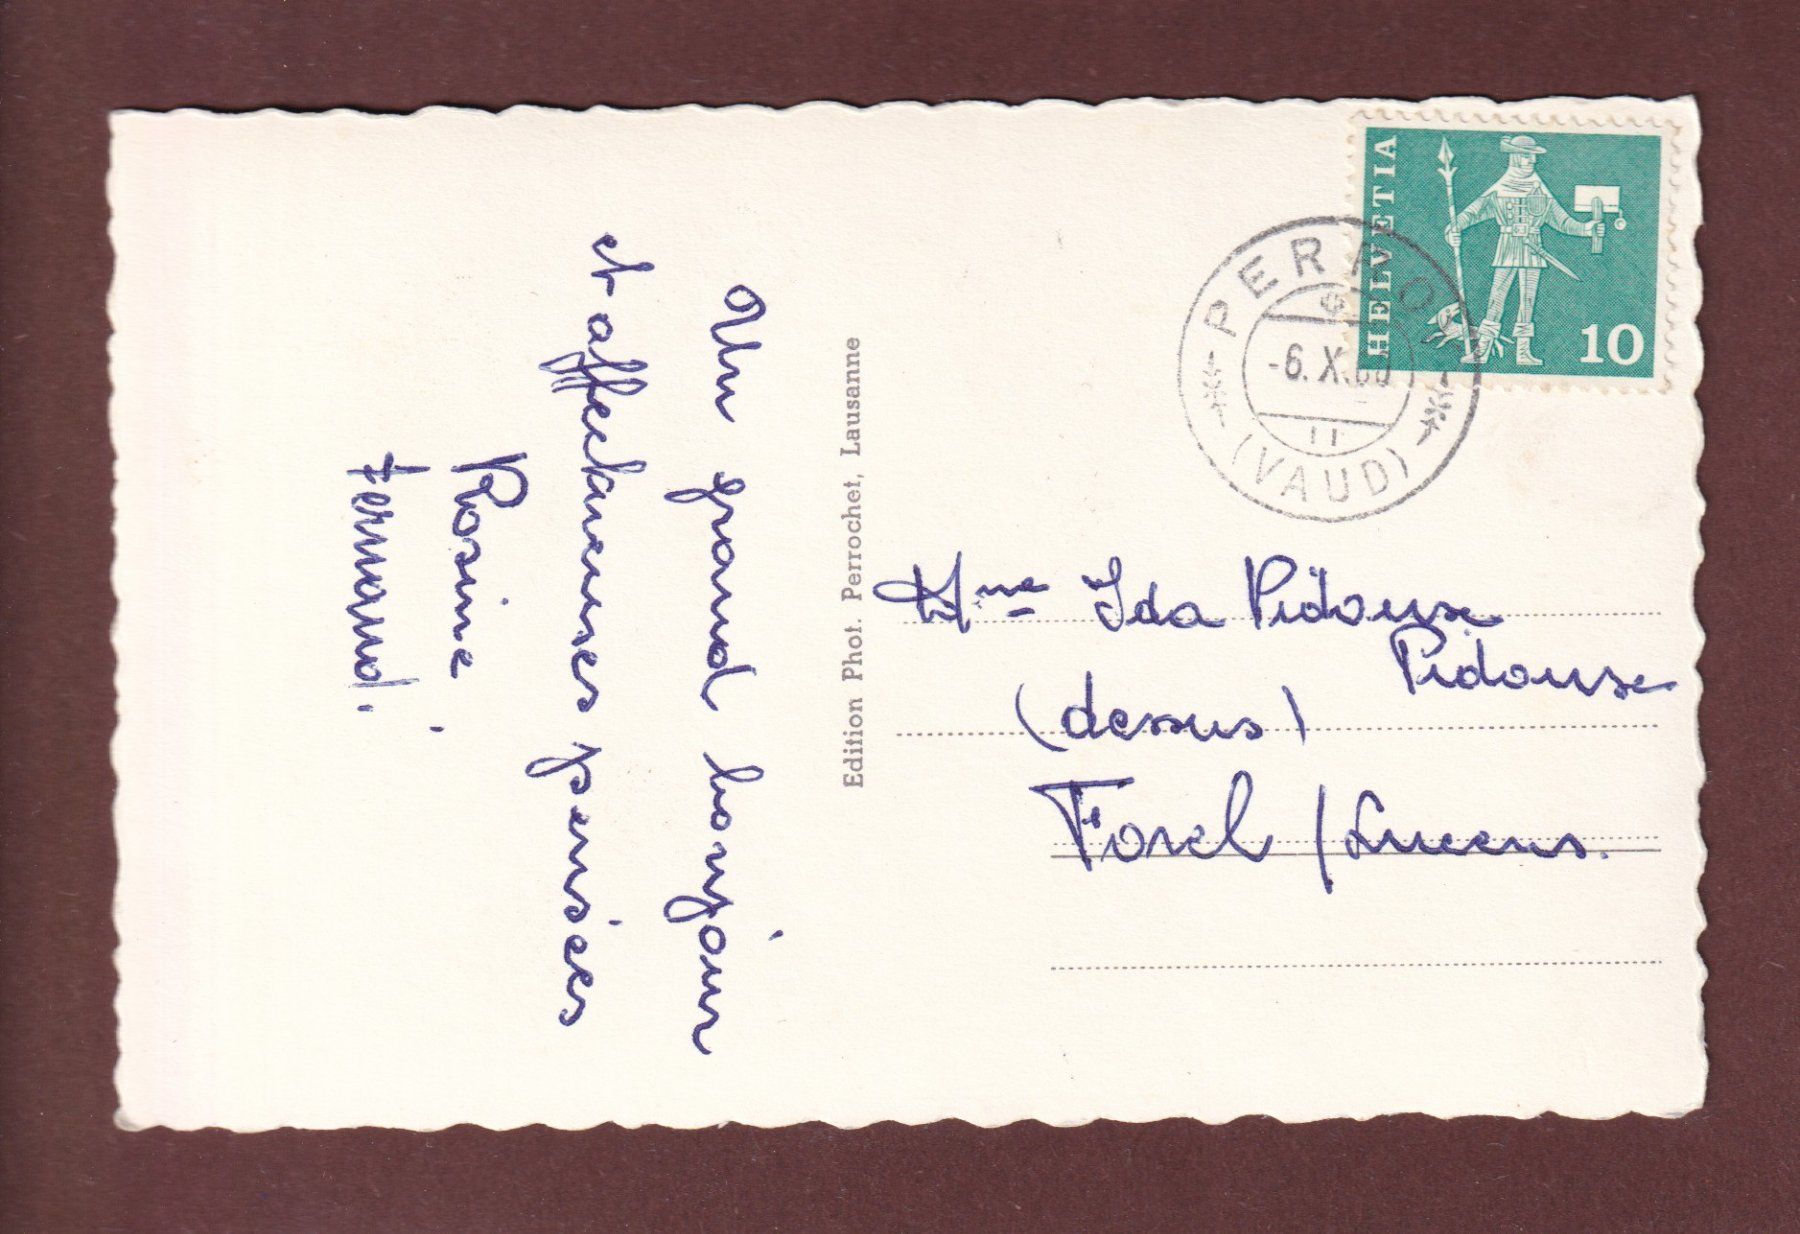 Un grand bonjour
et affectueuses pensées
Rosine
Fernand.
Edition Phot. Perrochet, Lausanne
HELVETIA
10
PERROY
-6. X.
11
(VAUD)
Mme Ida Pidoux
Pidoux
(dessus)
Forel / Lucens.